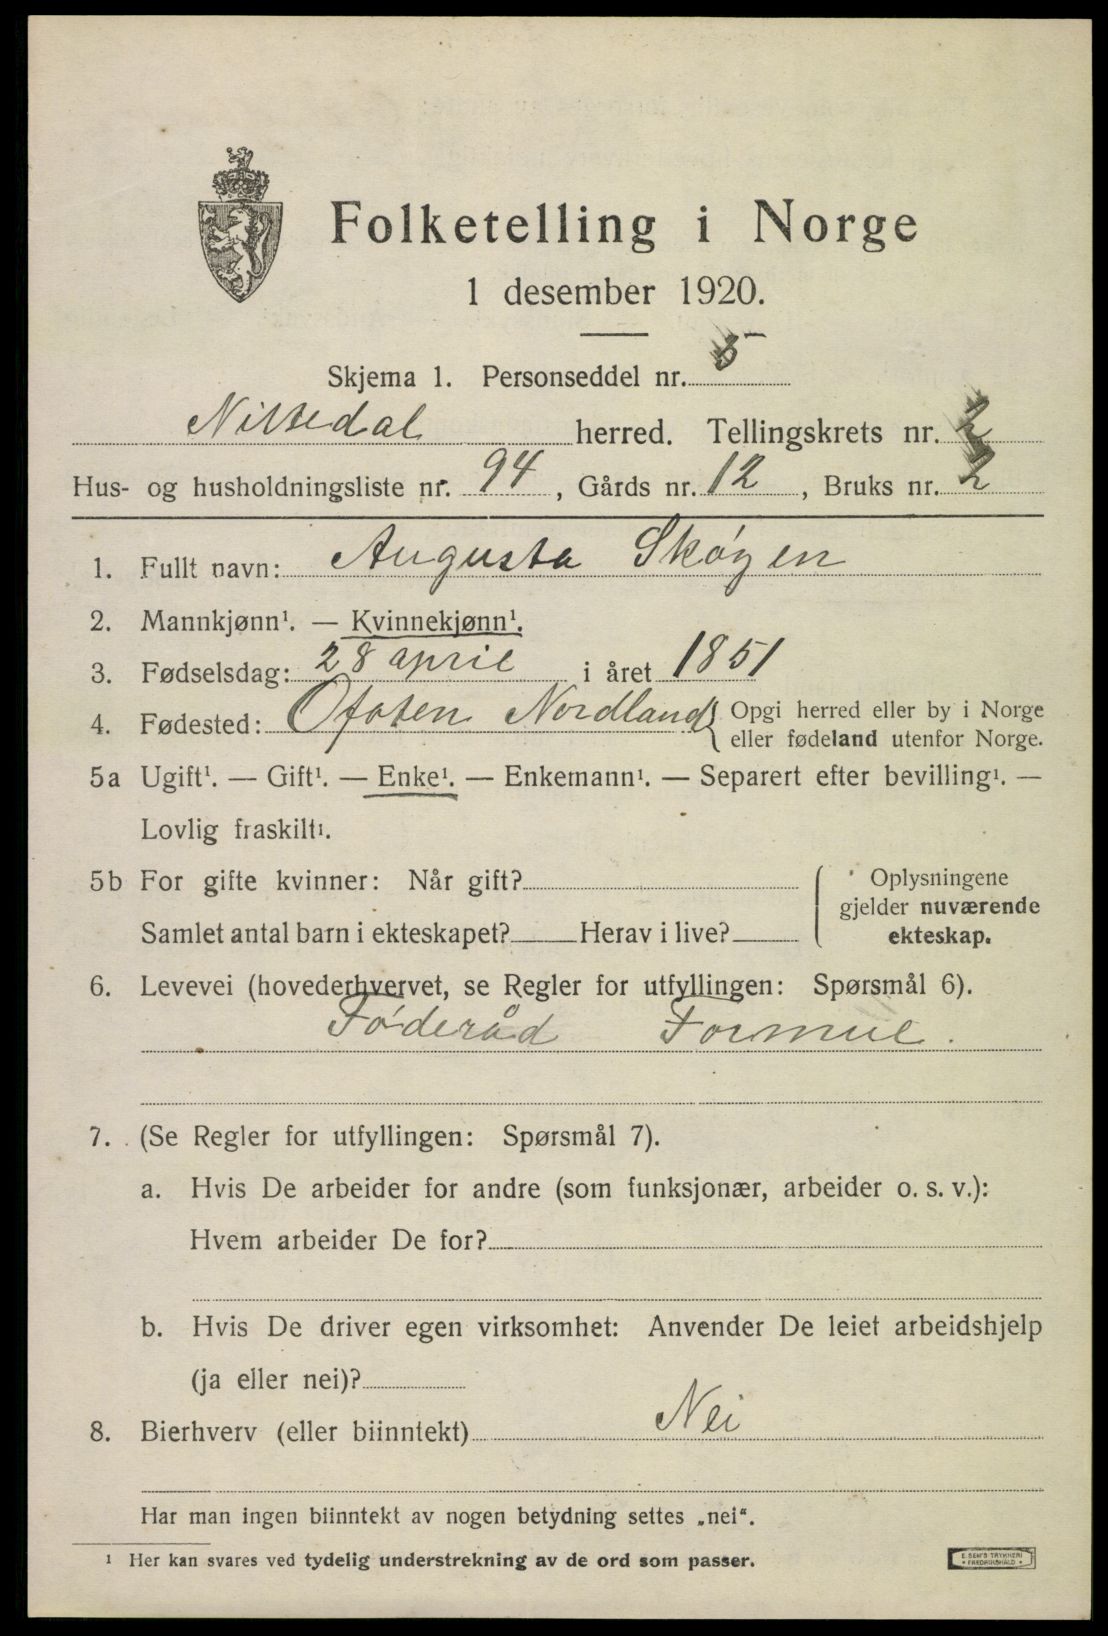 Folketelling i Norge
1 desember 1920.
Skjema 1. Personseddel nr. 5
Nittedal herred. Tellingskrets nr. 2
Hus- og husholdningsliste nr. 94, Gårds nr. 12, Bruks nr. 2
1. Fullt navn: Augusta Skøyen
2. Mannkjønn¹. — Kvinnekjønn¹.
3. Fødselsdag: 28 april i året 1851
4. Fødested: Ofoten Nordland { Opgi herred eller by i Norge
eller fødeland utenfor Norge.
5a Ugift¹. — Gift¹. — Enke¹. — Enkemann¹. — Separert efter bevilling¹. —
Lovlig fraskilt¹.
5b For gifte kvinner: Når gift?
Samlet antal barn i ekteskapet? Herav i live?
Oplysningene
gjelder nuværende
ekteskap.
6. Levevei (hovederhvervet, se Regler for utfyllingen: Spørsmål 6).
Føderåd Formue.
7. (Se Regler for utfyllingen: Spørsmål 7).
a. Hvis De arbeider for andre (som funksjonær, arbeider o. s. v.):
Hvem arbeider De for?
b. Hvis De driver egen virksomhet: Anvender De leiet arbeidshjelp
(ja eller nei)?
8. Bierhverv (eller biinntekt) Nei
Har man ingen biinntekt av nogen betydning settes „nei".
¹ Her kan svares ved tydelig understrekning av de ord som passer.
E. SEM'S TRYKKERI
• FREDRIKSHALD •